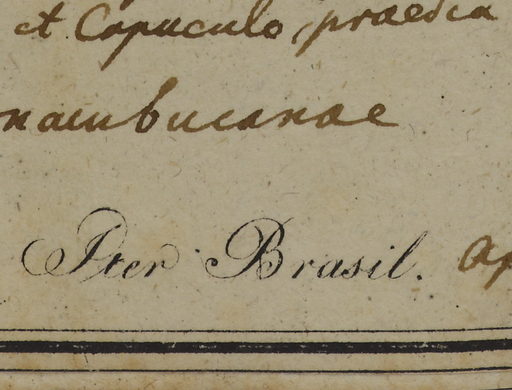 et Capuculo, praedia
nambucanae
Iter Brasil. Ap